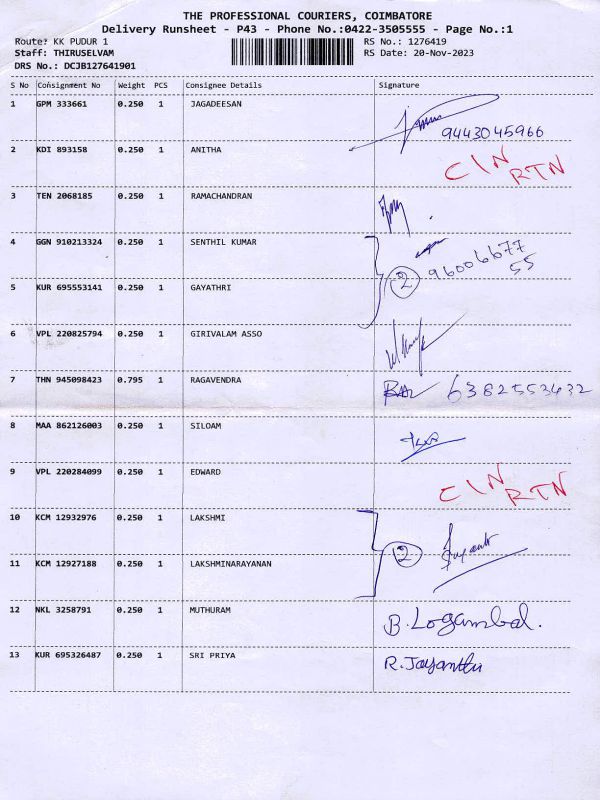 THE PROFESSIONAL COURIERS, COIMBATORE
Delivery Runsheet - P43 - Phone No.:0422-3505555 - Page No.:1
Route: KK PUDUR 1 RS No.: 1276419
Staff: THIRUSELVAM RS Date: 20-Nov-2023
DRS No.: DCJB127641901
S No Consignment No Weight PCS Consignee Details Signature
1 GPM 333661 0.250 1 JAGADEESAN
9443045966
2 KDI 893158 0.250 1 ANITHA CIN
RTN
3 TEN 2068185 0.250 1 RAMACHANDRAN
4 GGN 910213324 0.250 1 SENTHIL KUMAR
9600667755
5 KUR 695553141 0.250 1 GAYATHRI 2
6 VPL 220825794 0.250 1 GIRIVALAM ASSO
7 THN 945098423 0.795 1 RAGAVENDRA 6382553432
8 MAA 862126003 0.250 1 SILOAM
9 VPL 220284099 0.250 1 EDWARD CIN
RTN
10 KCM 12932976 0.250 1 LAKSHMI
2
11 KCM 12927188 0.250 1 LAKSHMINARAYANAN
12 NKL 3258791 0.250 1 MUTHURAM B.Logambal.
13 KUR 695326487 0.250 1 SRI PRIYA R.Jayanthi